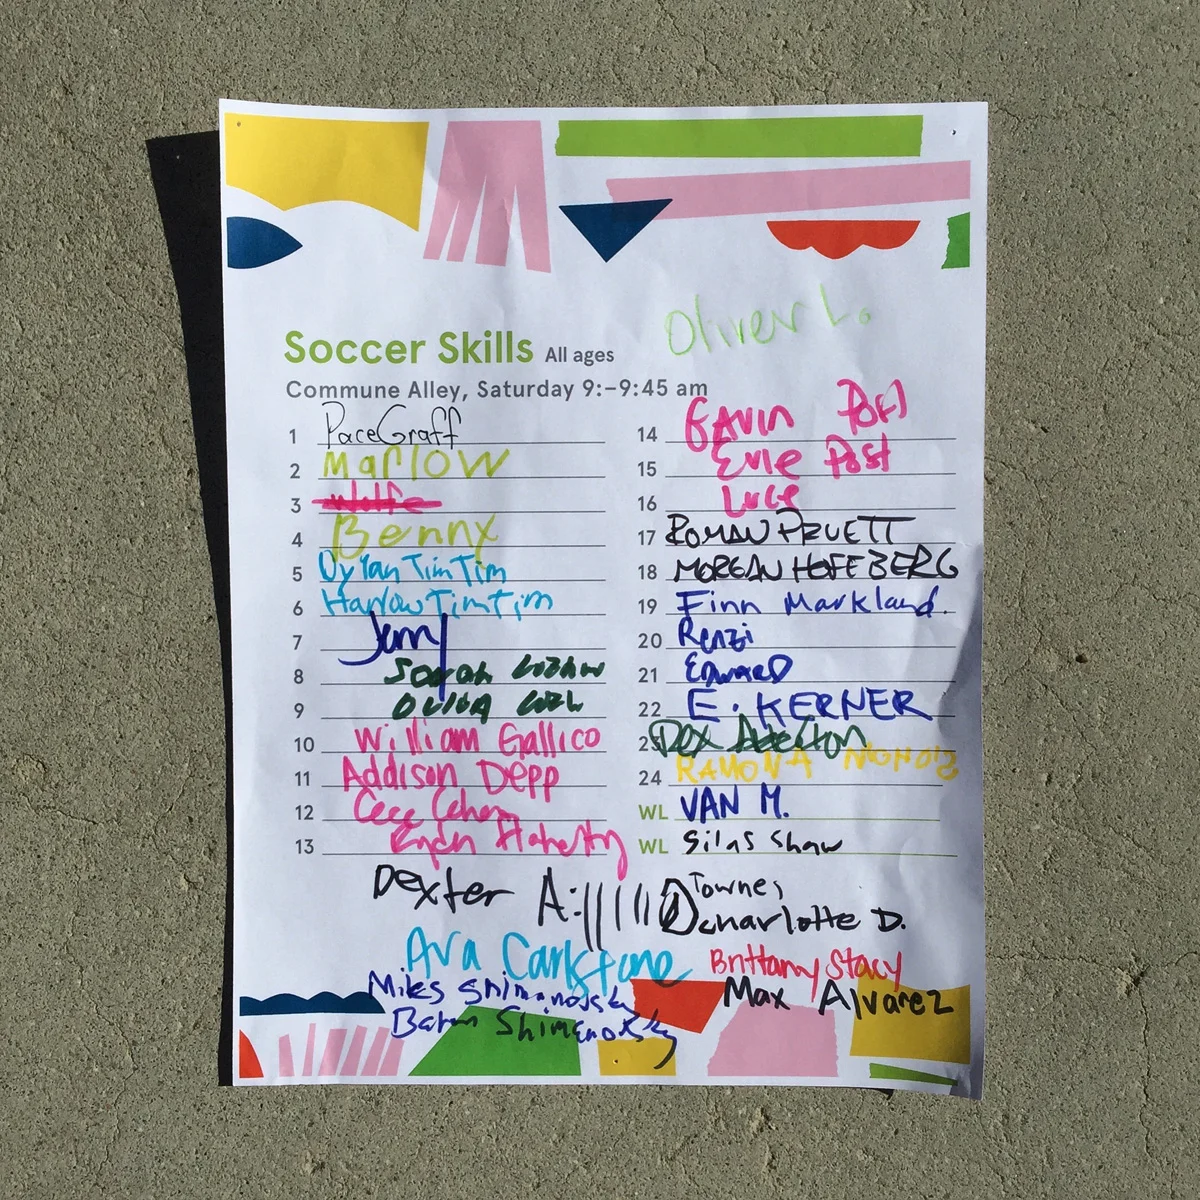 Oliver L.
Soccer Skills All ages
Commune Alley, Saturday 9:–9:45 am
1 Pace Graff
2 Marlow
3 Wolfe
4 Benny
5 Dylan TimTim
6 Harlow TimTim
7
8 Sarah
9 Olivia
10 William Gallico
11 Addison Depp
12 Cece Cohen
13 Flaherty
14 GAVIN Post
15 Evie Post
16 Luce
17 ROMAN PRUETT
18 MORGAN HOFEBERG
19 Finn Markland.
20 Renzi
21 EDWARD
22 E. KERNER
23 Dex
24 RAMONA
WL VAN M.
WL Silas Shaw
Dexter
Townes
Charlotte D.
Ava Carkstone
Brittany Stacy
Miles Shimanovsky
Max Alvarez
Shimanovsky